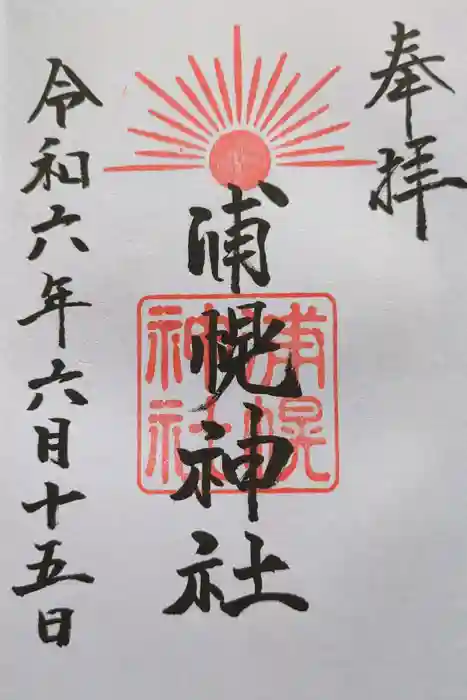 奉拝
浦幌神社
浦幌神社
令和六年六月十五日